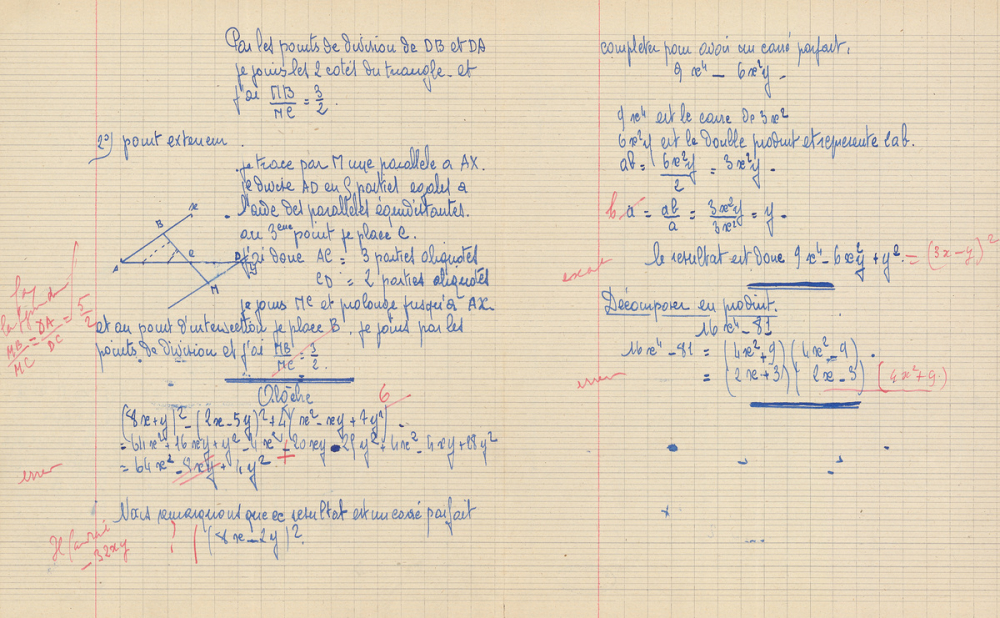 Par les points de division de DB et DA
je joins les 2 cotés du triangle et
j'ai MB/MC = 3/2.
2°) point exterieur.
je trace par M une parallele a AX.
je divise AD en 5 parties egales a
l'aide des paralleles équidistantes.
au 3eme point je place C.
j'ai donc AC = 3 parties aliquotes
CD = 2 parties aliquotes
je joins MC et prolonge jusqu'à AX
et au point d'intersection je place B. je joins par les
points de division et j'ai MB/MC = 3/2.
x
B
A
C
D
M
MB/MC = DA/DC = 5/2
Algèbre
(8x+y)² - (2x-5y)² + 4(x² - xy + 7y²)
6
= 64x² + 16xy + y² - 4x² - 20xy - 25y² + 4x² - 4xy + 28y²
+
= 64x² - 8xy + 4y²
erreur
Nous remarquons que ce resultat est un carré parfait
(8x - 2y)².
?
Il faudrait
- 32xy
completer pour avoir un carré parfait.
9x⁴ - 6x²y.
9x⁴ est le carré de 3x²
6x²y est le double produit et represente 2ab.
ab = 6x²y/2 = 3x²y.
b a = ab/a = 3x²y/3x² = y.
le resultat est donc 9x⁴ - 6x²y + y² = (3x - y)²
exact
Décomposer en produit.
16x⁴ - 81
16x⁴ - 81 = (4x² + 9)(4x² - 9).
= (2x + 3)(2x - 3) (4x² + 9)
erreur